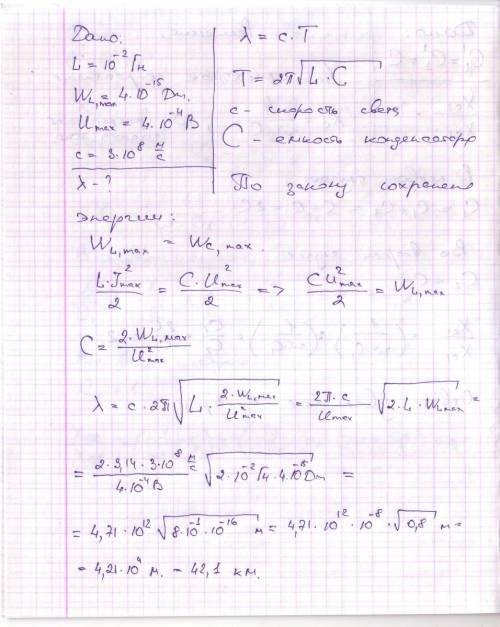 Дано.
L = 10⁻² Гн
W_L,max = 4·10⁻¹⁵ Дж.
U_max = 4·10⁻⁴ В
c = 3·10⁸ м/с
λ - ?
λ = c · T
T = 2π√(L · C)
c - скорость света
C - емкость конденсатора
По закону сохранения
энергии:
W_L,max = W_C,max.
L·I²_max/2 = C·U²_max/2 => CU²_max/2 = W_L,max
C = 2·W_L,max/U²_max
λ = c·2π√(L · 2·W_L,max/U²_max) = 2π·c/U_max √(2·L·W_L,max) =
= 2·3,14·3·10⁸ м/с / 4·10⁻⁴ В √(2·10⁻² Гн·4·10⁻¹⁵ Дж) =
= 4,71·10¹² √(8·10⁻¹·10⁻¹⁶) м = 4,71·10¹²·10⁻⁸·√0,8 м =
= 4,21·10⁴ м. = 42,1 км.